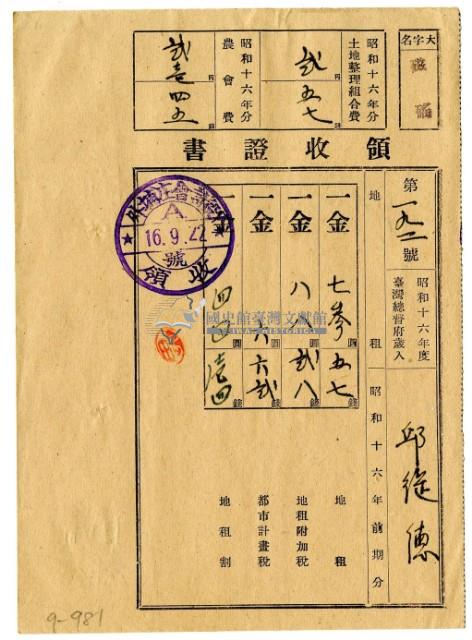 大字名
昭和十六年分
土地整理組合費
圓
弍五七
錢
昭和十六年分
農會費
圓
弍壱四五
錢
領收證書
第一九一號
昭和十六年度
臺灣總督府歲入
邱
德
地租
昭和十六年前期分
一金
七参五七
圓
錢
地租
一金
弍八
圓
錢
地租附加税
一金
六弍
圓
錢
都市計畫税
一金
圓
錢
地租割
A
16.9.22
號
領收
國史館臺灣文獻館
TAIWAN HISTORICA
9-981